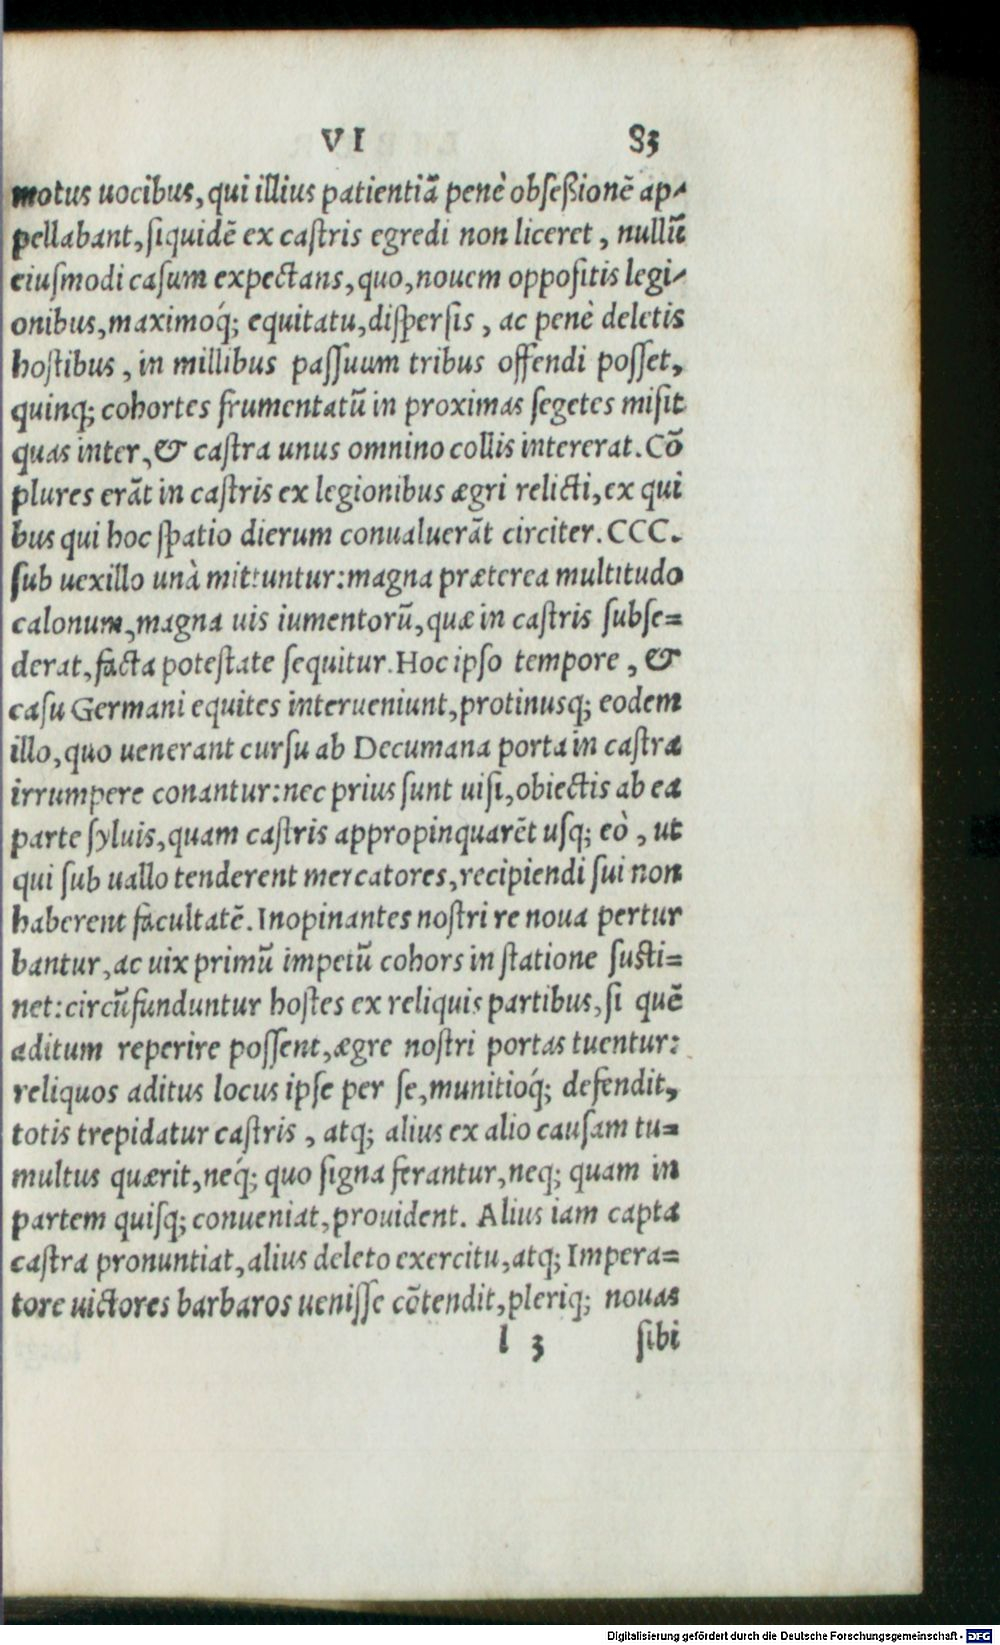 VI 83
motus uocibus, qui illius patientiã penè obseßionẽ ap-
pellabant, siquidẽ ex castris egredi non liceret, nullũ
eiusmodi casum expectans, quo, nouem oppositis legi-
onibus, maximoq́; equitatu, dispersis, ac penè deletis
hostibus, in millibus passuum tribus offendi posset,
quinq; cohortes frumentatũ in proximas segetes misit
quas inter, & castra unus omnino collis intererat. Cõ
plures erãt in castris ex legionibus ægri relicti, ex qui
bus qui hoc spatio dierum conualuerãt circiter. CCC.
sub uexillo unà mittuntur: magna præterea multitudo
calonum, magna uis iumentorũ, quæ in castris subse=
derat, facta potestate sequitur. Hoc ipso tempore, &
casu Germani equites interueniunt, protinusq; eodem
illo, quo uenerant cursu ab Decumana porta in castra
irrumpere conantur: nec prius sunt uisi, obiectis ab ea
parte syluis, quam castris appropinquarẽt usq; eò, ut
qui sub uallo tenderent mercatores, recipiendi sui non
haberent facultatẽ. Inopinantes nostri re noua pertur
bantur, ac uix primũ impetũ cohors in statione susti=
net: circũfunduntur hostes ex reliquis partibus, si quẽ
aditum reperire possent, ægre nostri portas tuentur:
reliquos aditus locus ipse per se, munitioq́; defendit,
totis trepidatur castris, atq; alius ex alio causam tu=
multus quærit, neq́; quo signa ferantur, neq; quam in
partem quisq; conueniat, prouident. Alius iam capta
castra pronuntiat, alius deleto exercitu, atq; Impera=
tore uictores barbaros uenisse cõtendit, pleriq; nouas
l 3 sibi
Digitalisierung gefördert durch die Deutsche Forschungsgemeinschaft - DFG